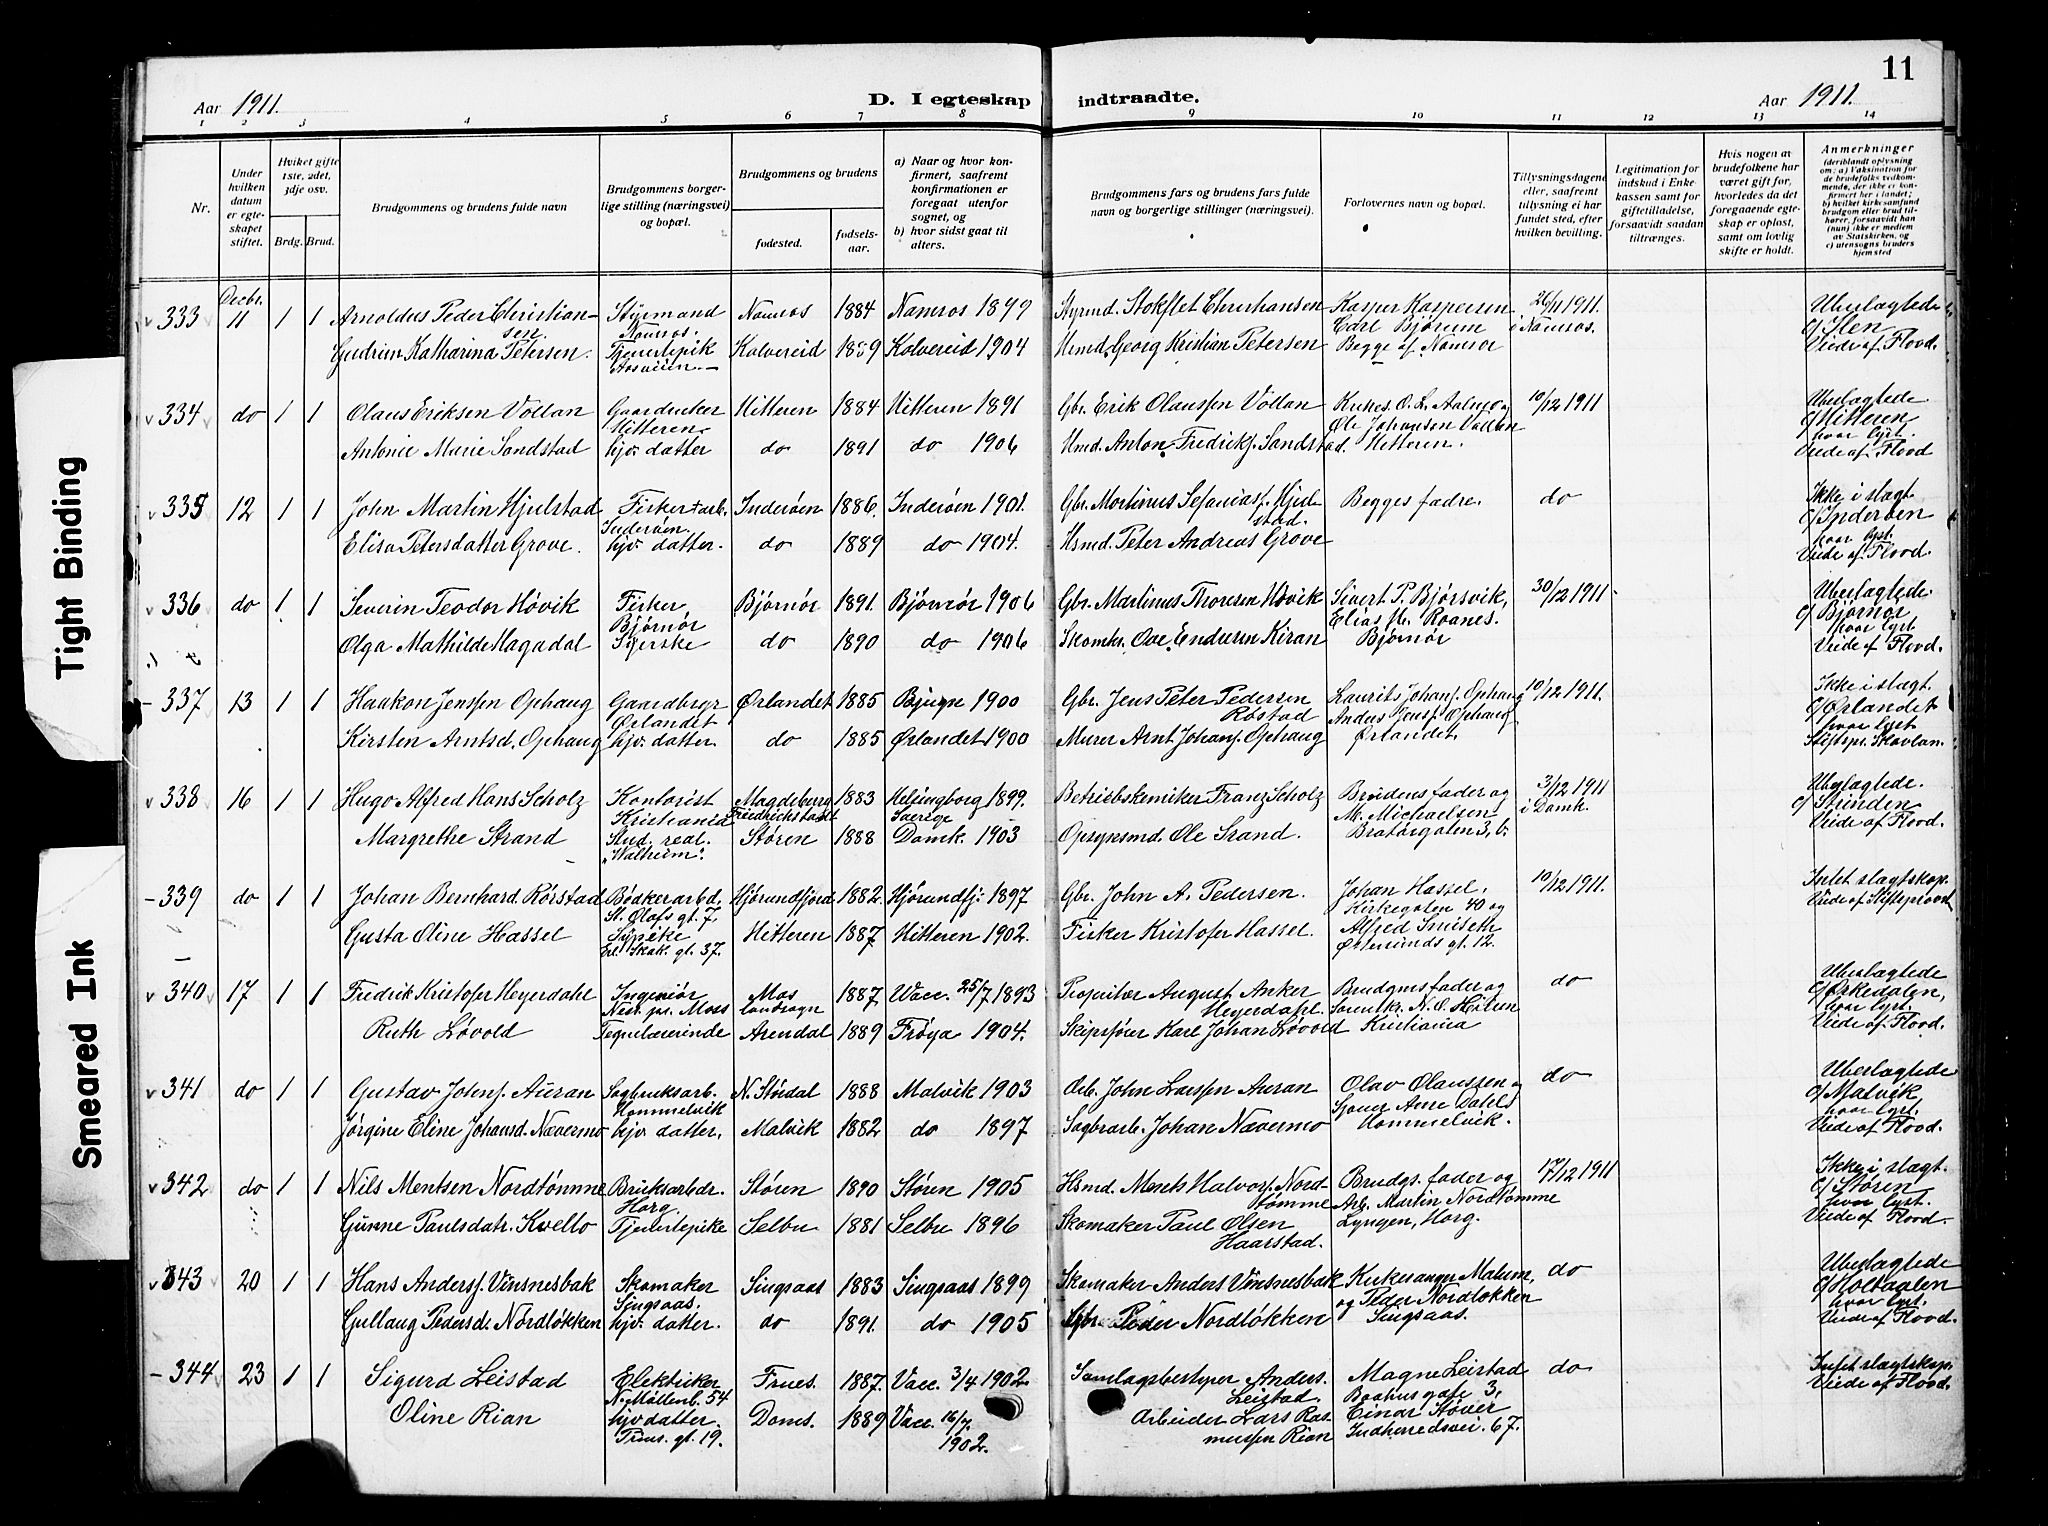 11
Aar 1911.
D. I egteskap indtraadte.
Aar 1911.
1 2 3 4 5 6 7 8 9 10 11 12 13 14
Nr.
Under hvilken datum er egteskapet stiftet.
Hvilket gifte 1ste, 2det, 3dje osv.
Brdg. Brud.
Brudgommens og brudens fulde navn
Brudgommens borgerlige stilling (næringsvei) og bopæl.
Brudgommens og brudens
fødested.
fødselsaar.
a) Naar og hvor konfirmert, saafremt konfirmationen er foregaat utenfor sognet, og
b) hvor sidst gaat til alters.
Brudgommens fars og brudens fars fulde navn og borgerlige stillinger (næringsvei).
Forlovernes navn og bopæl.
Tillysningsdagene eller, saafremt tillysning ei har fundet sted, efter hvilken bevilling.
Legitimation for indskud i Enkekassen samt for giftetilladelse, forsaavidt saadan tiltrænges.
Hvis nogen av brudefolkene har været gift før, hvorledes da det foregaaende egteskap er opløst, samt om lovlig skifte er holdt.
Anmerkninger
(deriblandt oplysning om: a) Vaksination for de brudefolks vedkommende, der ikke er konfirmert her i landet; b) hvilket kirkesamfund brudgom eller brud tilhører, forsaavidt han (hun) ikke er medlem av Statskirken, og c) utensogns bruders hjemsted
Tight Binding
Smeared Ink
333 Decbr. 11 1 1 Arnoldus Peder Christiansen Styrmand Namsos. Namsos 1884 Namsos 1899 Styrmd. Stokflet Christiansen Kasper Kaspersen Carl Bjørum Begge af Namsos 26/11 1911. i Namsos. Ubeslægtede c/ Ilen Viede af Flood.
Gudrun Katharina Petersen. Kolvereid 1889 Kolvereid 1904 Hsmd. Georg Kristian Petersen
334 do 1 1 Olaus Eriksen Vollan Gaardbruker Hitteren. Hitteren 1884 Hitteren 1891 Gbr. Erik Olaussen Vollan Ole Johansen Vollan Hitteren. 10/12 1911 Ubeslægtede c/ Hitteren hvor lyst. Viede af Flood
Antonie Marie Sandstad hjv. datter do 1891 do 1906 Hsmd. Anton Fredriks. Sandstad.
335 12 1 1 John Martin Hjulstad Fisker + arb. Inderøen. Inderøen 1886. Inderøen 1901. Gbr. Mortinus Sefanias. Hjulstad. Begges fædre. do Ikke i slægt. c/ Inderøen hvor lyst. Viede af Flood.
Elisa Petersdatter Grove. hjv. datter. do 1889 do 1904. Hsmd. Peter Andreas Grove
336 do 1 1 Severin Teodor Høvik Fisker, Bjørnør Bjørnør 1891. Bjørnør 1906 Gbr. Martinus Thoresen Høvik Sivert P. Bjørsvik, Elias Roanes. Bjørnør 30/12 1911. Ubeslægtede c/ Bjørnør hvor lyst. Viede af Flood.
Olga Mathilde Hagadal Syerske do 1890 do 1906 Skomkr. Ove Endresen Kiran
337 13 1 1 Haakon Jenssen Ophaug Gaardbrgr Ørlandet Ørlandet 1885 Bjugn 1900 Gbr. Jens Peter Pedersen Røstad Laurits Johans. Ophaug Anders Jens. Ophaug Ørlandet. 10/12 1911. Ikke i slægt. c/ Ørlandet hvor lyst. Stiftspr. Skavlan.
Kirsten Arntsd. Ophaug hjv. datter. do 1885 Ørlandet 1900 Murer Arnt Johans. Ophaug
338 16 1 1 Hugo Alfred Hans Scholz Kontorist Kristiania Magdeburg Friedrichstadt 1883 Helsingborg 1899. Sverige Betriebskemiker Franz Scholz Brudens fader og M. Michaelsen Bratørgaten 3, b. 3/12 1911 i Domk. Ubeslægtede. c/ Strinden Viede af Flood.
Margrethe Strand Stud. real. "Walheim". Støren 1888 Domk. 1903 Opsynsmd. Ole Strand.
339 do 1 1 Johan Bernhard Rørstad Bødkerarbd. St. Olafs gt. 7. Hjørundfjord 1882. Hjørundfj: 1897 Gbr. John A. Pedersen. Johan Hassel, Kirkegaten 40 og Alfred Smiseth Østersunds gt. 12. 10/12 1911. Intet slægtskap. Viede af Stiftsprovst
Gusta Oline Hassel Sypike Erl. Skak. gt. 37. Hitteren 1887 Hitteren 1902. Fisker Kristofer Hassel.
340 17 1 1 Fredrik Kristofer Heyerdahl Ingeniør Nes. pr. Moss Mos landsogn 1887 Vacc. 25/7 1893 Proprietær August Anker Heyerdahl. Brudgms fader og N. O. Hølsen Kristiania do Ubeslægtede c/ Orkedalen, hvor lyst. Viede af Flood.
Ruth Løvold Arendal 1889 Frøya 1904. Skipsfører Karl Johan Løvold
341 do 1 1 Gustav Johns. Auran Sagbruksarb. Hommelvik N. Stördal 1888 Malvik 1903 Arb. John Larssen Auran Olav Olaussen og Arne Dahls Hommelvik. do Ubeslægtede c/ Malvik hvor lyst. Viede af Flood.
Jørgine Eline Johansd. Nævermo hjv. datter. Malvik 1882 do 1897 Sagbrarb. Johan Nævermo
342 do 1 1 Nils Mentsen Nordtømme Bruksarbdr. Horg. Støren 1890 Støren 1905 Hsmd. Ments Halvors. Nordtømme Brudgs. fader og Arb. Martin Nordtømme Lyngen, Horg. 17/12 1911 Ikke i slægt. c/ Støren hvor lyst. Viede af Flood.
Gunne Paulsdatr. Kvello Tjenestepike Selbu 1881 Selbu 1896 Skomaker Paul Olsen Haarstad.
343 20 1 1 Hans Anders. Vinsnesbak Skomaker Singsaas. Singsaas 1883 Singsaas 1899 Skomaker Anders Vinsnesbak Kirkesanger Malum, og Peder Nordløkken Singsaas. do Ubeslægtede c/ Holtaalen hvor lyst. Viede af Flood.
Gullaug Pedersd. Nordløkken hjv. datter. do 1891. do 1905 Gbr. Peder Nordløkken
344 23 1 1 Sigurd Leistad Elektriker N. Møllenb. 54 Frues. 1887. Vacc. 3/4 1902. Samlagsbestyrer Anders Leistad. Magne Leistad Baahus gate 3, Einar Støver Indherredsvei. 67. do Intet slægtskap. Viede af Flood.
Oline Rian hjv datter. Doms. 1889 Vacc. 16/7 1902. Arbeider Lars Rasmussen Rian